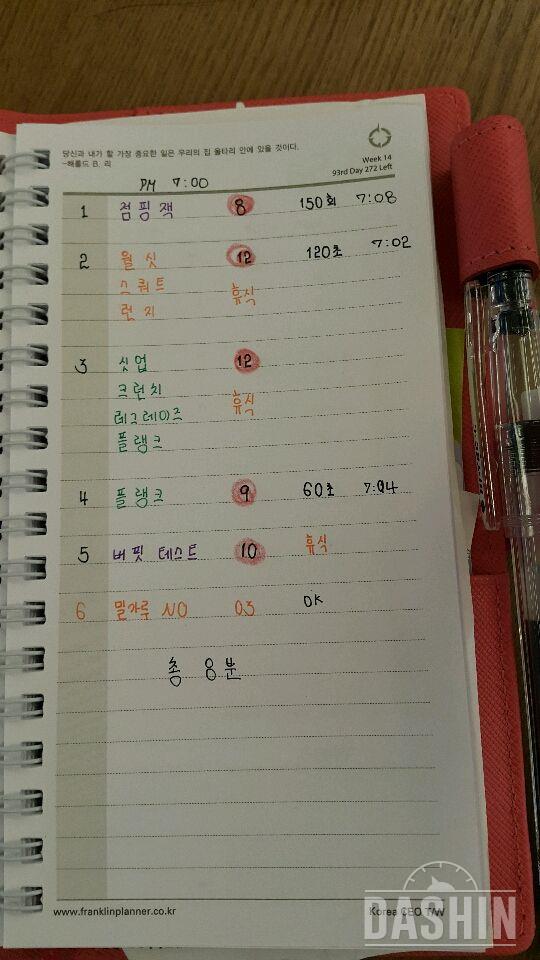 당신과 내가 할 가장 중요한 일은 우리의 집 울타리 안에 있을 것이다.
-해롤드 B. 리
Week 14
93rd Day 272 Left
PM 7:00
1 점핑잭 8 150회 7:08
2 월싯 12 120초 7:02
스쿼트 휴식
런지
3 싯업 12
크런치 휴식
레그레이즈
플랭크
4 플랭크 9 60초 7:04
5 버핏 테스트 10 휴식
6 밀가루 NO 03 OK
총 8분
www.franklinplanner.co.kr
Korea CEO T/W
DASHIN